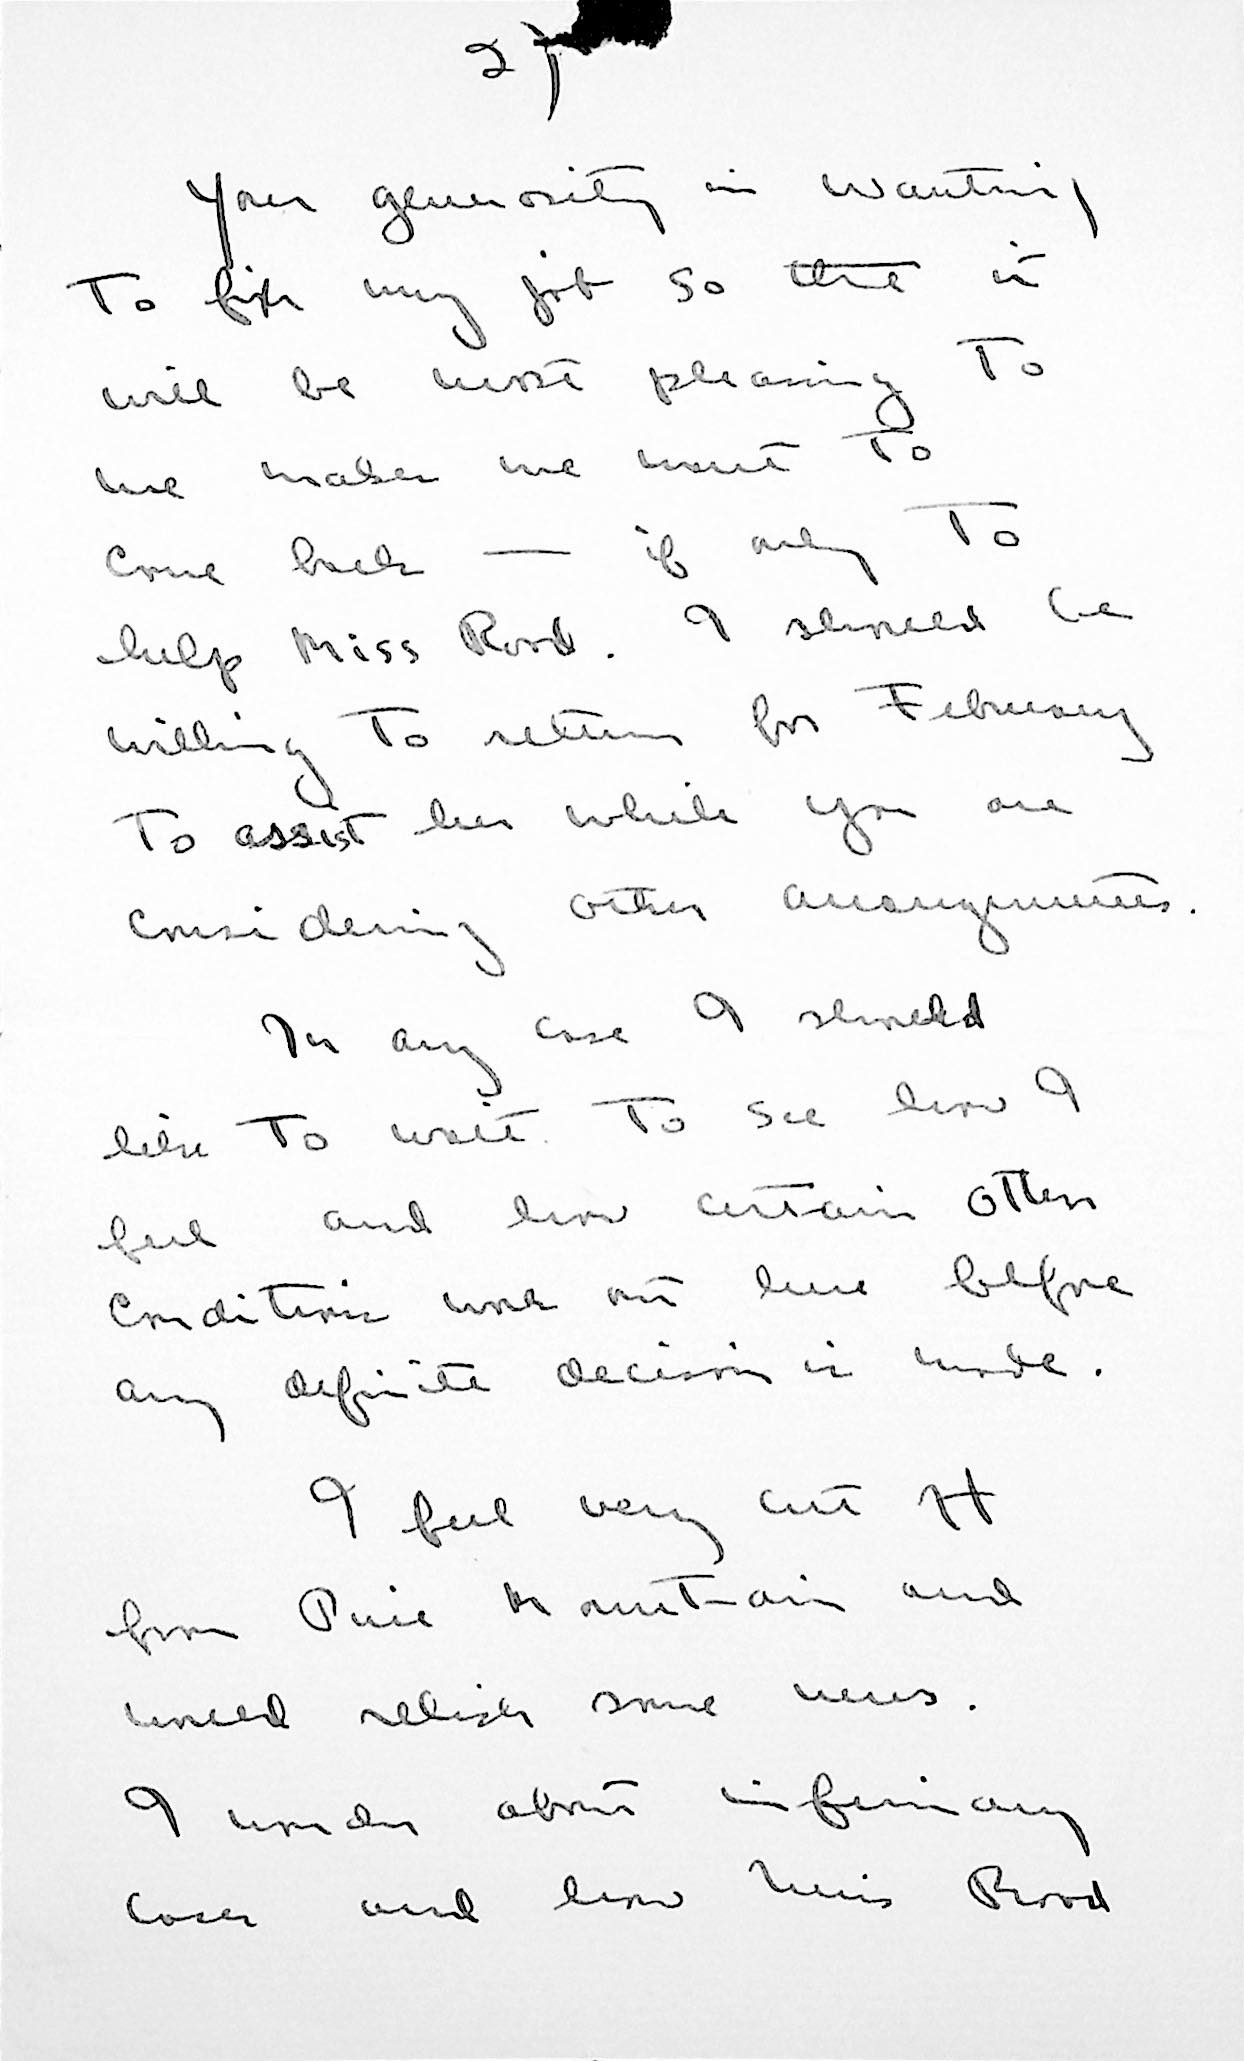 2)
Your generosity in wanting
to fix my job so the it
will be most pleasing to
me makes me want to
come back — if only to
help Miss Rood. I should be
willing to return for February
to assist her while you are
considering other arrangements.
In any case I should
like to wait to see how I
feel and how certain other
conditions work out here before
any definite decision is made.
I feel very cut off
from Pine Mountain and
would relish some news.
I wonder about infirmary
cases and how Miss Rood